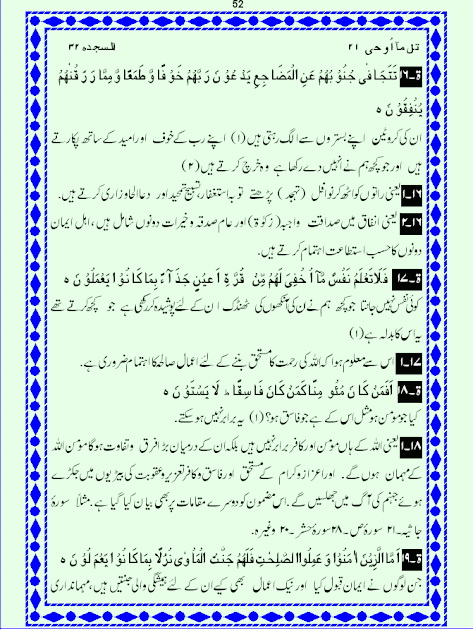 52
تل ماأوحی ۲۱ السجدہ ۳۲
ۃ۔۱۶ تَتَجَافٰی جُنُوْبُهُمْ عَنِ الْمَضَاجِعِ يَدْعُوْنَ رَبَّهُمْ خَوْفًا وَّ طَمَعًا وَّمِمَّا رَزَقْنٰهُمْ
يُنْفِقُوْنَ ه
ان کی کروٹیں اپنے بستروں سے الگ رہتی ہیں (۱) اپنے رب کے خوف اور امید کے ساتھ پکارتے
ہیں اور جو کچھ ہم نے انہیں دے رکھا ہے وہ خرچ کرتے ہیں (۲)
۱۶۔۱ یعنی راتوں کو اٹھ کر نوافل (تہجد) پڑھتے توبہ استغفار، تسبیح تحمید اور دعا الحاوزاری کرتے ہیں۔
۱۶۔۲ یعنی انفاق میں صداقت واجبہ (زکوۃ) اور عام صدقہ و خیرات دونوں شامل ہیں، اہل ایمان
دونوں کا حسب استطاعت اہتمام کرتے ہیں۔
ۃ۔۱۷ فَلَا تَعْلَمُ نَفْسٌ مَّآ اُخْفِیَ لَهُمْ مِّنْ قُرَّةِ اَعْيُنٍ جَزَآءًۢ بِمَا كَانُوْا يَعْمَلُوْنَ ه
کوئی نفس نہیں جانتا جو کچھ ہم نے ان کی آنکھوں کی ٹھنڈک ان کے لئے پوشیدہ کر رکھی ہے جو کچھ کرتے تھے
یہ اس کا بدلہ ہے (۱)
۱۷۔۱ اس سے معلوم ہوا کہ اللہ کی رحمت کا مستحق بننے کے لئے اعمال صالحہ کا اہتمام ضروری ہے۔
ۃ۔۱۸ اَفَمَنْ كَانَ مُؤْمِنًا كَمَنْ كَانَ فَاسِقًا ط لَا يَسْتَوٗنَ ه
کیا جو مومن ہو مثل اس کے ہے جو فاسق ہو؟ (۱) یہ برابر نہیں ہو سکتے۔
۱۸۔۱ یعنی اللہ کے ہاں مومن اور کافر برابر نہیں ہیں بلکہ ان کے درمیان بڑا فرق و تفاوت ہوگا مومن اللہ
کے مہمان ہوں گے۔ اور اعزاز و کرام کے مستحق اور فاسق و کافر تعزیر و عقوبت کی بیڑیوں میں جکڑے
ہوئے جہنم کی آگ میں جھلسیں گے۔ اس مضمون کو دوسرے مقامات پر بھی بیان کیا گیا ہے۔ مثلاً سورۃ
جاثیہ۔۲۱ سورۃ ص۔۲۸ سورۃ حشر۔۲۰ وغیرہ۔
ۃ۔۱۹ اَمَّا الَّذِيْنَ اٰمَنُوْا وَ عَمِلُوا الصّٰلِحٰتِ فَلَهُمْ جَنّٰتُ الْمَاْوٰی نُزُلًۢا بِمَا كَانُوْا يَعْمَلُوْنَ ه
جن لوگوں نے ایمان قبول کیا اور نیک اعمال بھی کیے ان کے لئے ہمیشگی والی جنتیں ہیں، مہمانداری